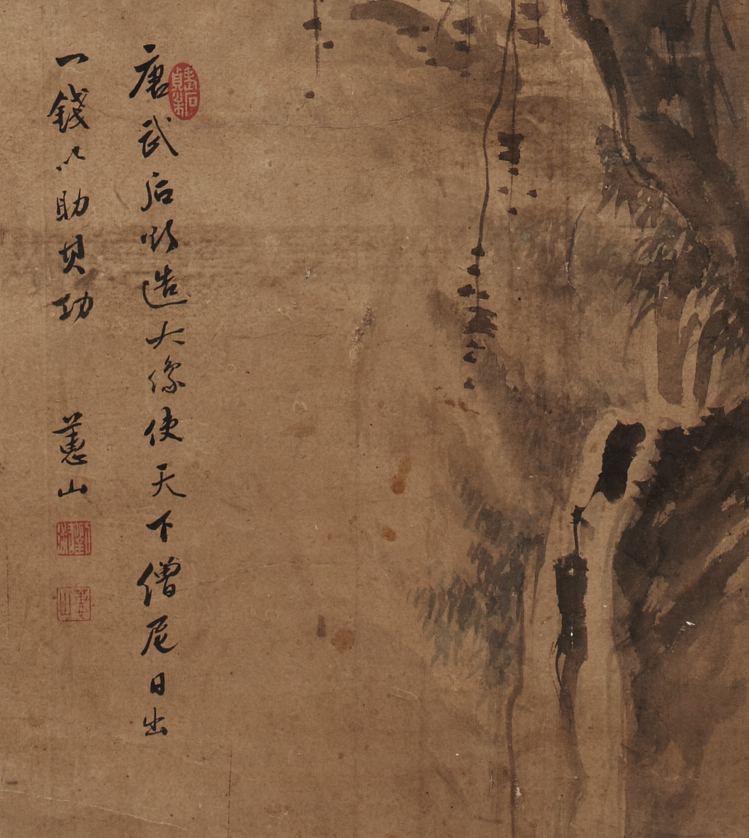 唐武后欲造大像使天下僧尼日出
一錢以助其功
蕙山
劉淑
蕙山